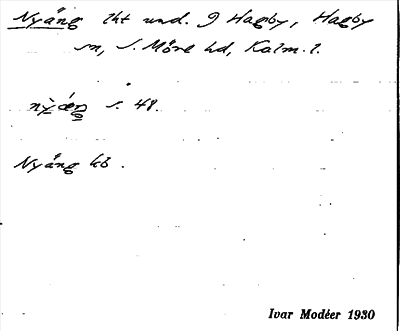 Nyäng lht und. 9 Hagby, Hagby
sn, S. Möre hd, Kalm. l.
s. 48.
Nyäng kb.
Ivar Modéer 1930